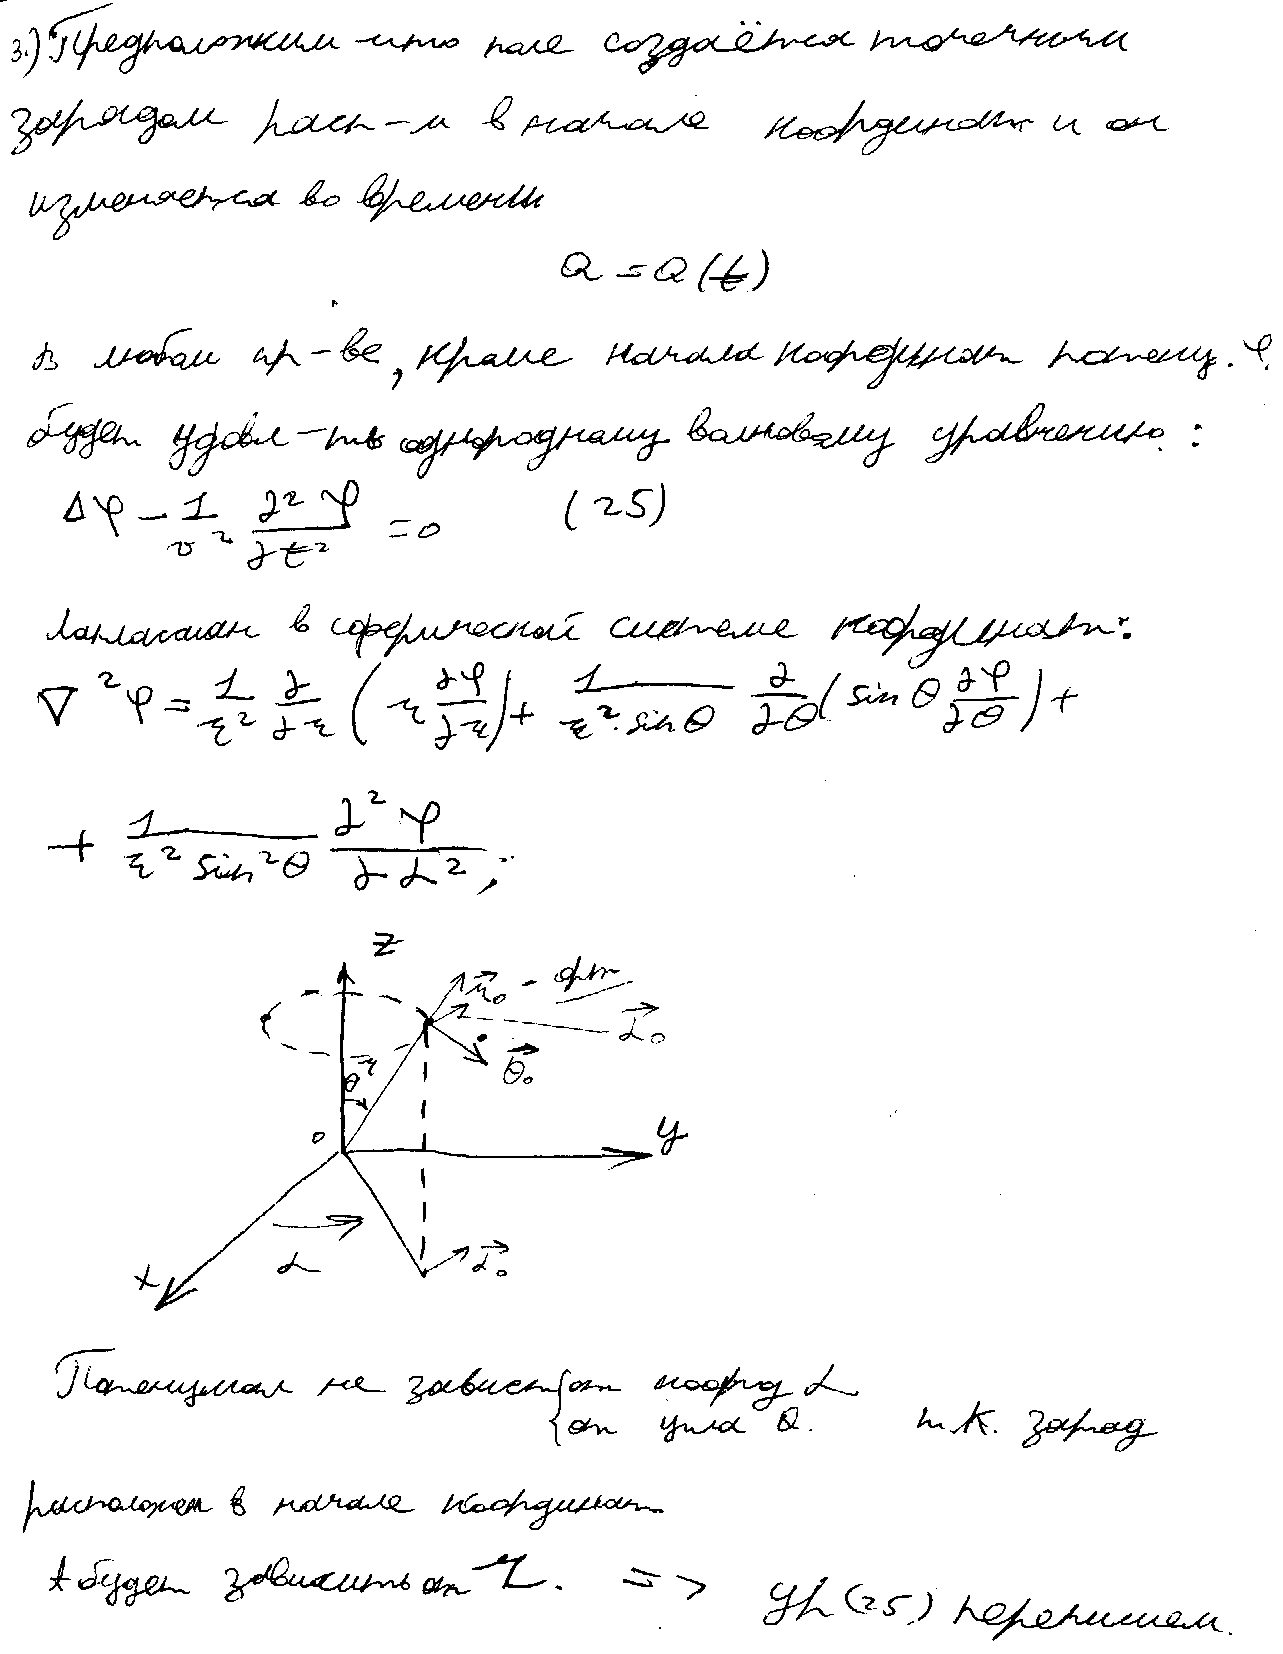 3.) Предположим что поле создаётся точечным
зарядом расп-м в начале координат и он
изменяется во времени
Q = Q(t)
В любом пр-ве, кроме начала координат потенц. φ
будет удовл-ть однородному волновому уравнению:
Δφ - 1/v² ∂²φ/∂t² = 0 (25)
Лапласиан в сферической системе координат:
∇²φ = 1/r² ∂/∂r (r ∂φ/∂r) + 1/(r²·sin θ) ∂/∂θ (sin θ ∂φ/∂θ) +
+ 1/(r² sin²θ) ∂²φ/∂α²;
z
r⃗₀ - орт
α⃗₀
θ⃗₀
r⃗
θ
0
y
α
α⃗₀
x
Потенциал не зависит { от коорд α
{ от угла θ. т.к. заряд
расположен в начале координат.
А будет зависить от r. => ур (25) перепишем.